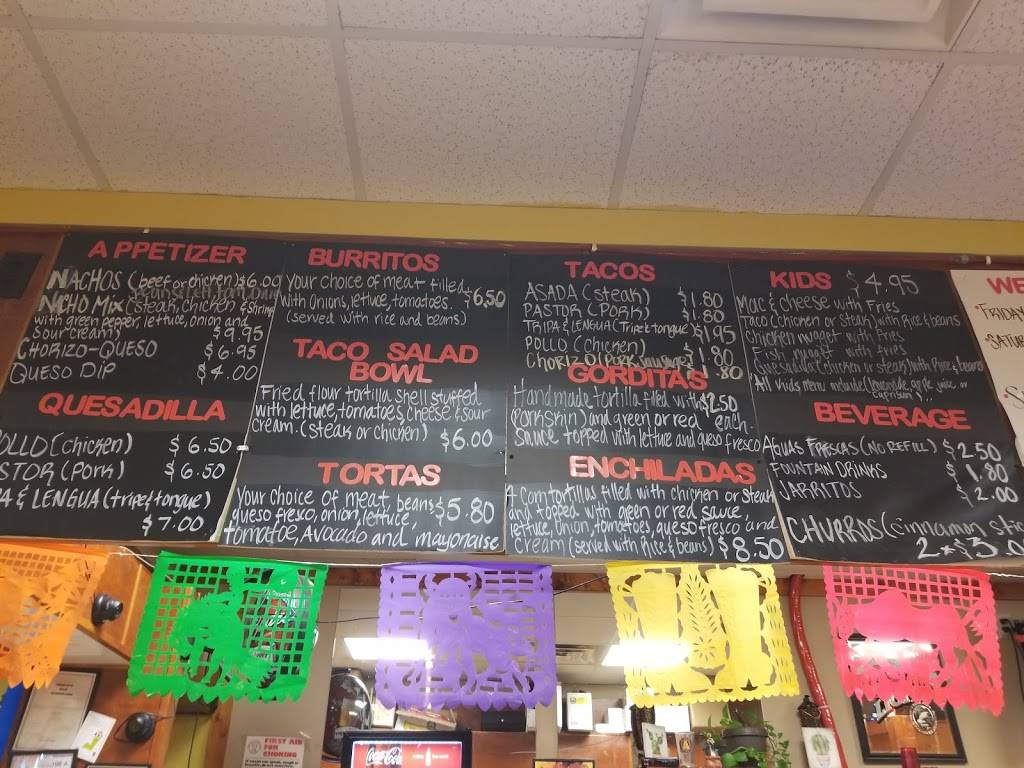 APPETIZER
NACHOS (beef or chicken) $6.00
NACHO MIX (steak, chicken & shrimp
with green pepper, lettuce, onion and
sour cream) $9.95
CHORIZO-QUESO $6.95
QUESO DIP $4.00
QUESADILLA
(chicken) $6.50
(PORK) $6.50
& LENGUA (tripe & tongue)
$7.00
BURRITOS
Your choice of meat filled
with onions, lettuce, tomatoes. $6.50
(served with rice and beans)
TACO SALAD
BOWL
Fried flour tortilla shell stuffed
with lettuce, tomatoes, cheese & sour
cream. (steak or chicken) $6.00
TORTAS
Your choice of meat beans $5.80
queso fresco, onion, lettuce,
tomatoe, Avocado and mayonaise
TACOS
ASADA (steak) $1.80
PASTOR (PORK) $1.80
TRIPA & LENGUA (Tripe & tongue) $1.95
POLLO (chicken) $1.80
CHORIZO (PORK sausage) $1.80
GORDITAS
Handmade tortilla filled with $2.50
(PORKSKIN) and green or red each
sauce topped with lettuce and queso fresco
ENCHILADAS
4 Corn tortillas filled with chicken or steak
and topped with green or red sauce,
lettuce, onion, tomatoes, queso fresco and
cream (served with Rice & beans) $8.50
KIDS $4.95
Mac & cheese with Fries
Taco (chicken or steak) with Rice & beans
Chicken nugget with fries
Fish nugget with fries
Quesadilla (chicken or steak) with Rice & beans
All kids menu included lemonade, apple juice or
caprisun
BEVERAGE
AGUAS FRESCAS (NO REFILL) $2.50
FOUNTAIN DRINKS $1.80
JARRITOS $2.00
CHURROS (cinnamon
2 x $3.0
WE
FRIDAY
SATUR
Coca-Cola
FIRST AID
FOR
CHOKING